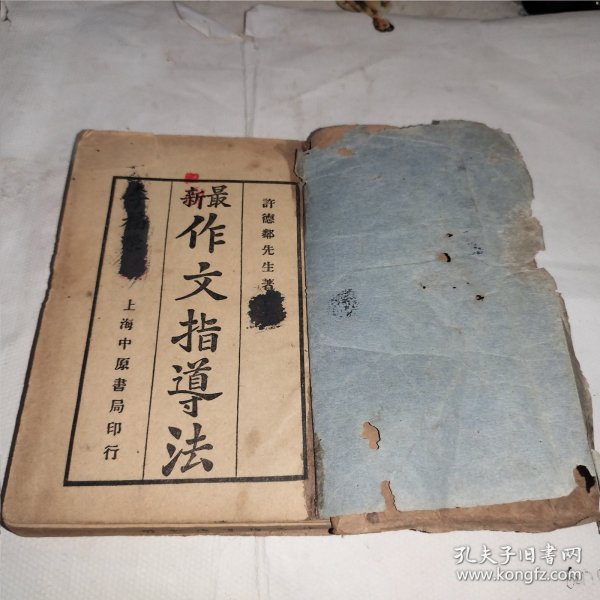 許德鄰先生著
最新
作文指導法
上海中原書局印行
孔夫子旧书网
www.kongfz.com